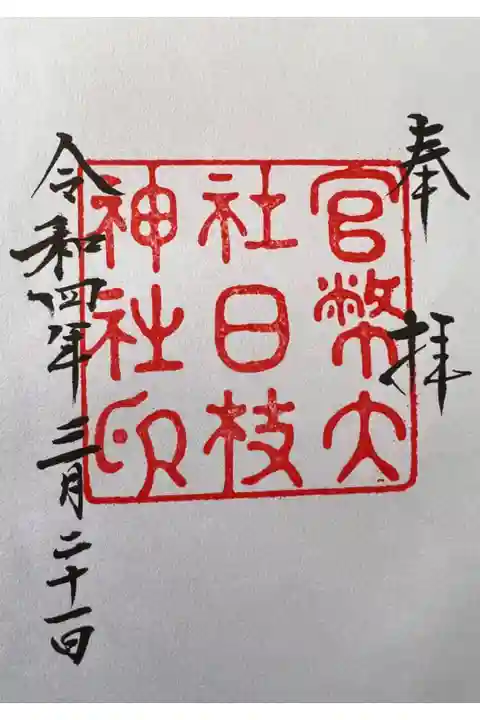 奉拝
官幣大
社日枝
神社印
令和四年三月二十一日